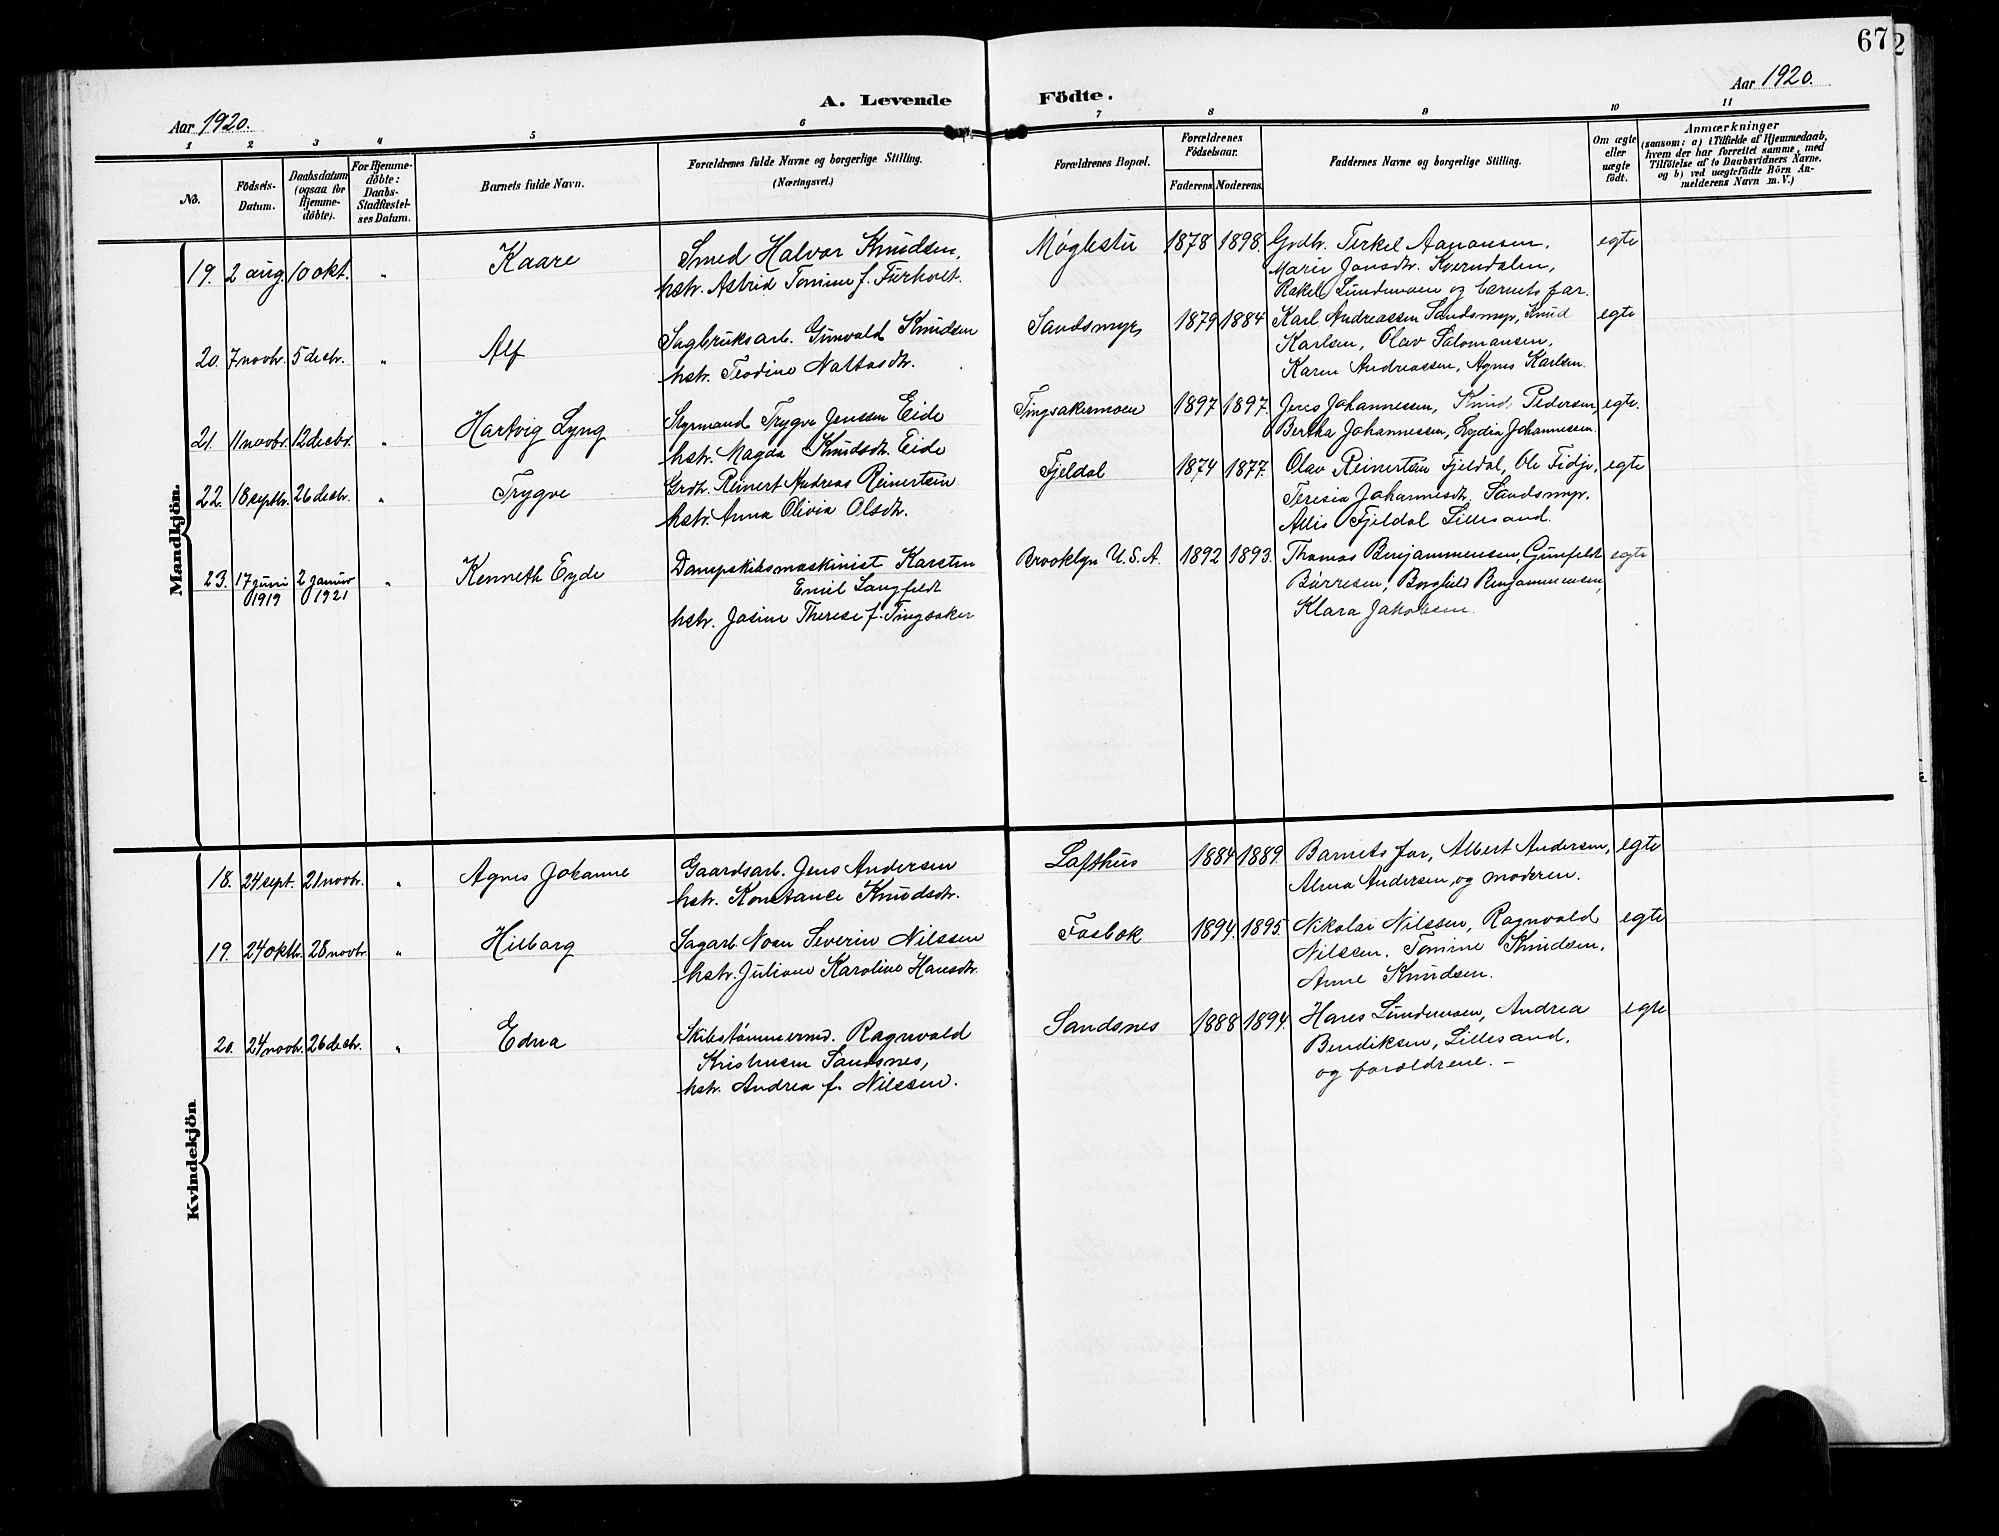 67
2
Aar 1920.
A. Levende Födte.
Aar 1920.
1 2 3 4 5 6 7 8 9 10 11
No.
Födsels-
Datum.
Daabsdatum
(ogsaa for
Hjemme-
döbte).
For Hjemme-
döbte:
Daabs-
Stadfæstel-
ses Datum.
Barnets fulde Navn.
Forældrenes fulde Navne og borgerlige Stilling.
(Næringsvei.)
Forældrenes Bopæl.
Forældrenes
Födselsaar.
Faderens. Moderens.
Faddernes Navne og borgerlige Stilling.
Om ægte
eller
uægte
født.
Anmærkninger
(saasom: a) i Tilfælde af Hjemmedaab,
hvem der har forrettet samme, med
Tilföielse af to Daabsvidners Navne.
og b) ved uægtefödte Börn An-
melderens Navn m. V.)
Mandkjön.
19. 2 aug. 10 okt. " Kaare
Smed Halvor Knudsen,
hstr. Astrid Tomine f. Furholt.
Møglestu 1878 1898.
Grdbr. Terkel Aanonsen,
Marie Jonsdtr. Kverndalen,
Rakel Lundemoen og barnets far.
egte
20. 7 novbr. 5 decbr. " Alf
Sagbruksarb. Gunvald Knudsen
hstr. Teodine Naltasdtr.
Sandsmyr 1879 1884
Karl Andreassen Sandsmyr, Knud
Karlsen, Olav Salomonsen,
Karen Andreassen, Agnes Karlsen.
egte
21. 11 novbr. 12 decbr. " Hartvig Lyng
Styrmand Trygve Jenssen Eide
hstr. Magda Knudsdtr. Eide
Tingsakermoen 1897 1897.
Jens Johannessen, Knud Pedersen,
Bertha Johannessen, Lydia Johannessen
egte.
22. 18 septbr. 26 decbr. " Trygve
Grdbr. Reinert Andreas Reinertsen
hstr. Anna Olivia Olsdtr.
Fjeldal 1874 1877.
Olav Reinertsen Fjeldal, Ole Fidje,
Teresia Johannesdtr. Sandsmyr.
Allis Fjeldal Lillesand.
egte
23. 17 juni 1919 2 januar 1921 " Kenneth Eyde
Dampskibsmaskinist Karsten
Emil Langfeldt
hstr. Josine Therese f. Tingsaker
Brooklyn U.S.A. 1892 1893.
Thomas Benjaminsen, Gunfeld
Børresen, Borghild Benjaminsen,
Klara Jakobsen.
egte
Kvindekjön
18. 24 sept. 21 novbr. " Agnes Johanne
Gaardsarb. Jens Andersen
hstr. Konstance Knudsdtr.
Lofthus 1884 1889.
Barnets far, Albert Andersen,
Alma Andersen, og moderen.
egte
19. 24 oktb. 28 novbr. " Hilborg
Sagarb. Noan Severin Nilssen
hstr. Juliane Karoline Hansdtr.
Fosbæk 1894. 1895.
Nikolai Nilssen, Ragnvald
Nilssen. Tomine Knudsen,
Anne Knudsen.
egte
20. 24 novb. 26 decbr. " Edna
Skibstømmermd. Ragnvald
Kristensen Sandsnes,
hstr. Andrea f. Nilssen.
Sandsnes 1888 1894.
Hans Lundemoen, Andrea
Bendiksen, Lillesand,
og forældrene. –
egte